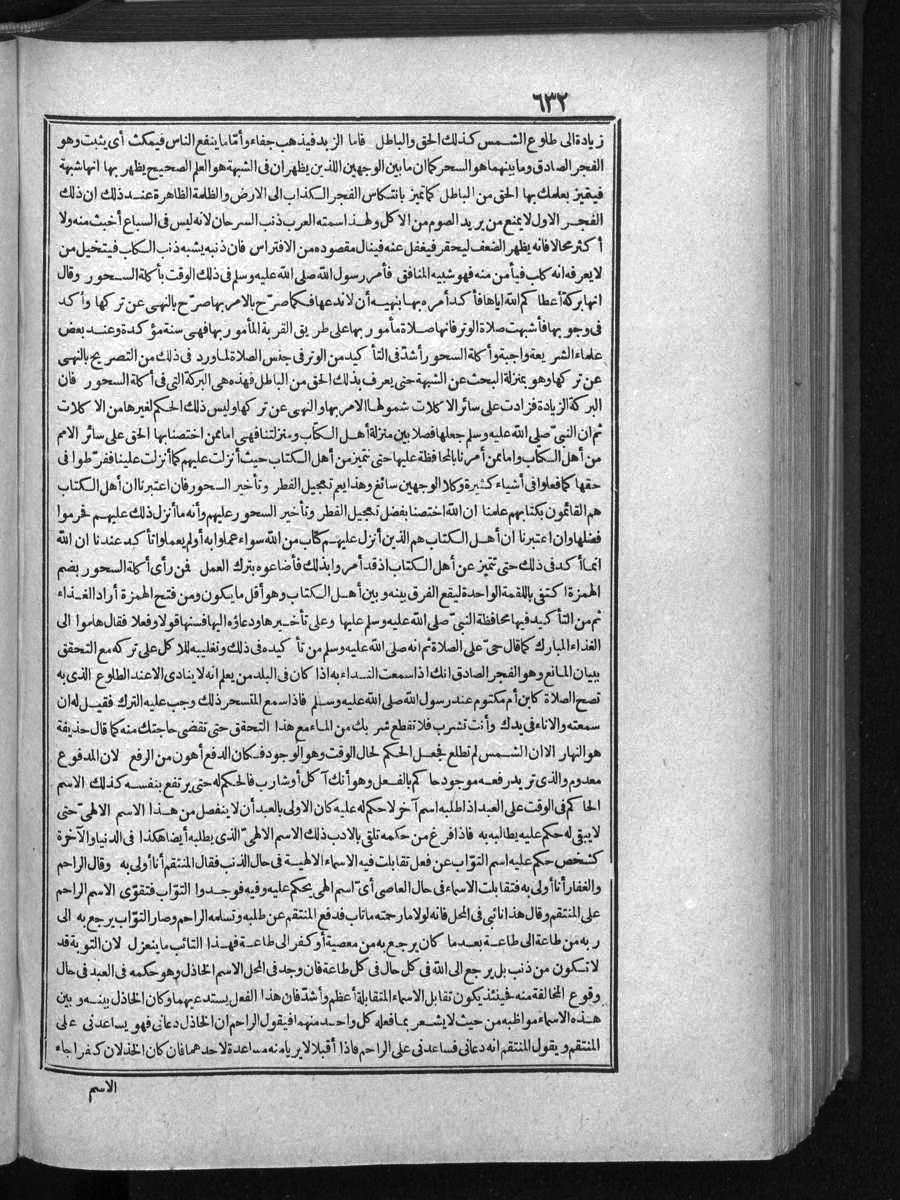 ٦٣٢
زيادة الى طلوع الشمس كذلك الحق والباطل فاما الزبد فيذهب جفاء وأمّا ما ينفع الناس فيمكث أى يثبت وهو
الفجر الصادق وما بينهما هو السحر كما ان ما بين الوجهين اللذين يظهران فى الشبهة هو العلم الصحيح يظهر بها انها شبهة
فيتميز بعلمك بها الحق من الباطل كما تميز بانتكاس الفجر الكذاب الى الارض والظلمة الظاهرة عند ذلك ان ذلك
الفجر الاول لا يمنع من يريد الصوم من الاكل ولهذا سمته العرب ذنب السرحان لانه ليس فى السباع أخبث منه ولا
أكثر محالا فانه يظهر الضعف ليحقر فيغفل عنه فينال مقصوده من الافتراس فان ذنبه يشبه ذنب الكلب فيتخيل من
لا يعرفه انه كلب فيأمن منه فهو شبيه المنافق فأمر رسول الله صلى الله عليه وسلم فى ذلك الوقت بأكلة السحور وقال
انها بركة أعطاكم الله اياها فأكد أمره بها بنهيه أن لا ندعها فكما صرّح بالامر بها صرّح بالنهى عن تركها وأكد
فى وجوبها فأشبهت صلاة الوتر فانها صلاة مأمور بها على طريق القربة المأمور بها فهى سنة مؤكدة وعند بعض
علماء الشريعة واجبة وأكلة السحور أشدّ فى التأكيد من الوتر فى جنس الصلاة لما ورد فى ذلك من التصريح بالنهى
عن تركها وهو بمنزلة البحث عن الشبهة حتى يعرف بذلك الحق من الباطل فهذه هى البركة التى فى أكلة السحور فان
البركة الزيادة فزادت على سائر الاكلات شمولها الامر بها والنهى عن تركها وليس ذلك الحكم لغيرها من الاكلات
ثم ان النبىّ صلى الله عليه وسلم جعلها فصلا بين منزلة أهل الكتاب ومنزلتنا فهى اما من اختصنا بها الحق على سائر الامم
من أهل الكتاب واما من أمرنا بالمحافظة عليها حتى نتميز من أهل الكتاب حيث أنزلت عليهم كما أنزلت علينا ففرّطوا فى
حقها كما فعلوا فى أشياء كثيرة وكلا الوجهين سائغ وهذا يعم تعجيل الفطر وتأخير السحور فان اعتبرنا ان أهل الكتاب
هم القائمون بكتابهم علمنا ان الله اختصنا بفضل تعجيل الفطر وتأخير السحور عليهم وأنه ما أنزل ذلك عليهم فحرموا
فضلها وان اعتبرنا ان أهل الكتاب هم الذين أنزل عليهم كتاب من الله سواء عملوا به أو لم يعملوا تأكد عندنا ان الله
انما أكد فى ذلك حتى نتميز عن أهل الكتاب اذ قد أمروا بذلك فأضاعوه بترك العمل فمن رأى أكلة السحور بضم
الهمزة اكتفى باللقمة الواحدة ليقع الفرق بينه وبين أهل الكتاب وهو أقل ما يكون ومن فتح الهمزة أراد الغذاء
ثم من التأكيد فيها محافظة النبىّ صلى الله عليه وسلم عليها وعلى تأخيرها ودعاؤه اليها فسنها قولا وفعلا فقال هلموا الى
الغذاء المبارك كما قال حىّ على الصلاة ثم انه صلى الله عليه وسلم من تأكيده فى ذلك وتغليبه للاكل على تركه مع التحقق
ببيان المانع وهو الفجر الصادق انك اذا سمعت النداء به اذا كان فى البلد من يعلم انه لا ينادى الا عند الطلوع الذى به
تصح الصلاة كابن أم مكتوم عند رسول الله صلى الله عليه وسلم فاذا سمع المتسحر ذلك وجب عليه الترك فقيل له ان
سمعته والاناء فى يدك وأنت تشرب فلا تقطع شربك من الماء مع هذا التحقق حتى تقضى حاجتك منه كما قال حذيفة
هو النهار الا ان الشمس لم تطلع فجعل الحكم لحال الوقت وهو الوجود فكان الدفع أهون من الرفع لان المدفوع
معدوم والذى تريد رفعه موجود حاكم بالفعل وهو أنك آكل أو شارب فالحكم له حتى يرتفع بنفسه كذلك الاسم
الحاكم فى الوقت على العبد اذا طلبه اسم آخر لا حكم له عليه كان الاولى بالعبد أن لا ينفصل من هذا الاسم الالهىّ حتى
لا يبقى له حكم عليه يطالبه به فاذا فرغ من حكمه تلقى بالادب ذلك الاسم الالهىّ الذى يطلبه أيضا هكذا فى الدنيا والآخرة
كشخص حكم عليه اسم التوّاب عن فعل تقابلت فيه الاسماء الالهية فى حال الذنب فقال المنتقم أنا أولى به وقال الراحم
والغفار أنا أولى به فتقابلت الاسماء فى حال العاصى أىّ اسم الهى يحكم عليه وفيه فوجدوا التوّاب فتقوّى الاسم الراحم
على المنتقم وقال هذا نائبى فى المحل فانه لولا مارحمته ما تاب فدفع المنتقم عن طلبه وتسلمه الراحم وصار التوّاب يرجع به الى
ربه من طاعة الى طاعة بعد ما كان يرجع به من معصية أو كفر الى طاعة فهذا التائب ما ينعزل لان التوبة قد
لا تكون من ذنب بل يرجع الى الله فى كل حال فى كل طاعة فان وجد فى المحل الاسم الخاذل وهو حكمه فى العبد فى حال
وقوع المخالفة منه فحينئذ يكون تقابل الاسماء المتقابلة أعظم وأشدّ فان هذا الفعل يستدعيهما وكان الخاذل بينه وبين
هذه الاسماء مواظبه من حيث لا يشعر بما فعله كل واحد منهما فيقول الراحم ان الخاذل دعانى فهو يساعدنى على
المنتقم ويقول المنتقم انه دعانى فساعدنى على الراحم فاذا أقبلا لا يريا منه مساعدة لاحدهما فان كان الخذلان كفرا جاء
الاسم